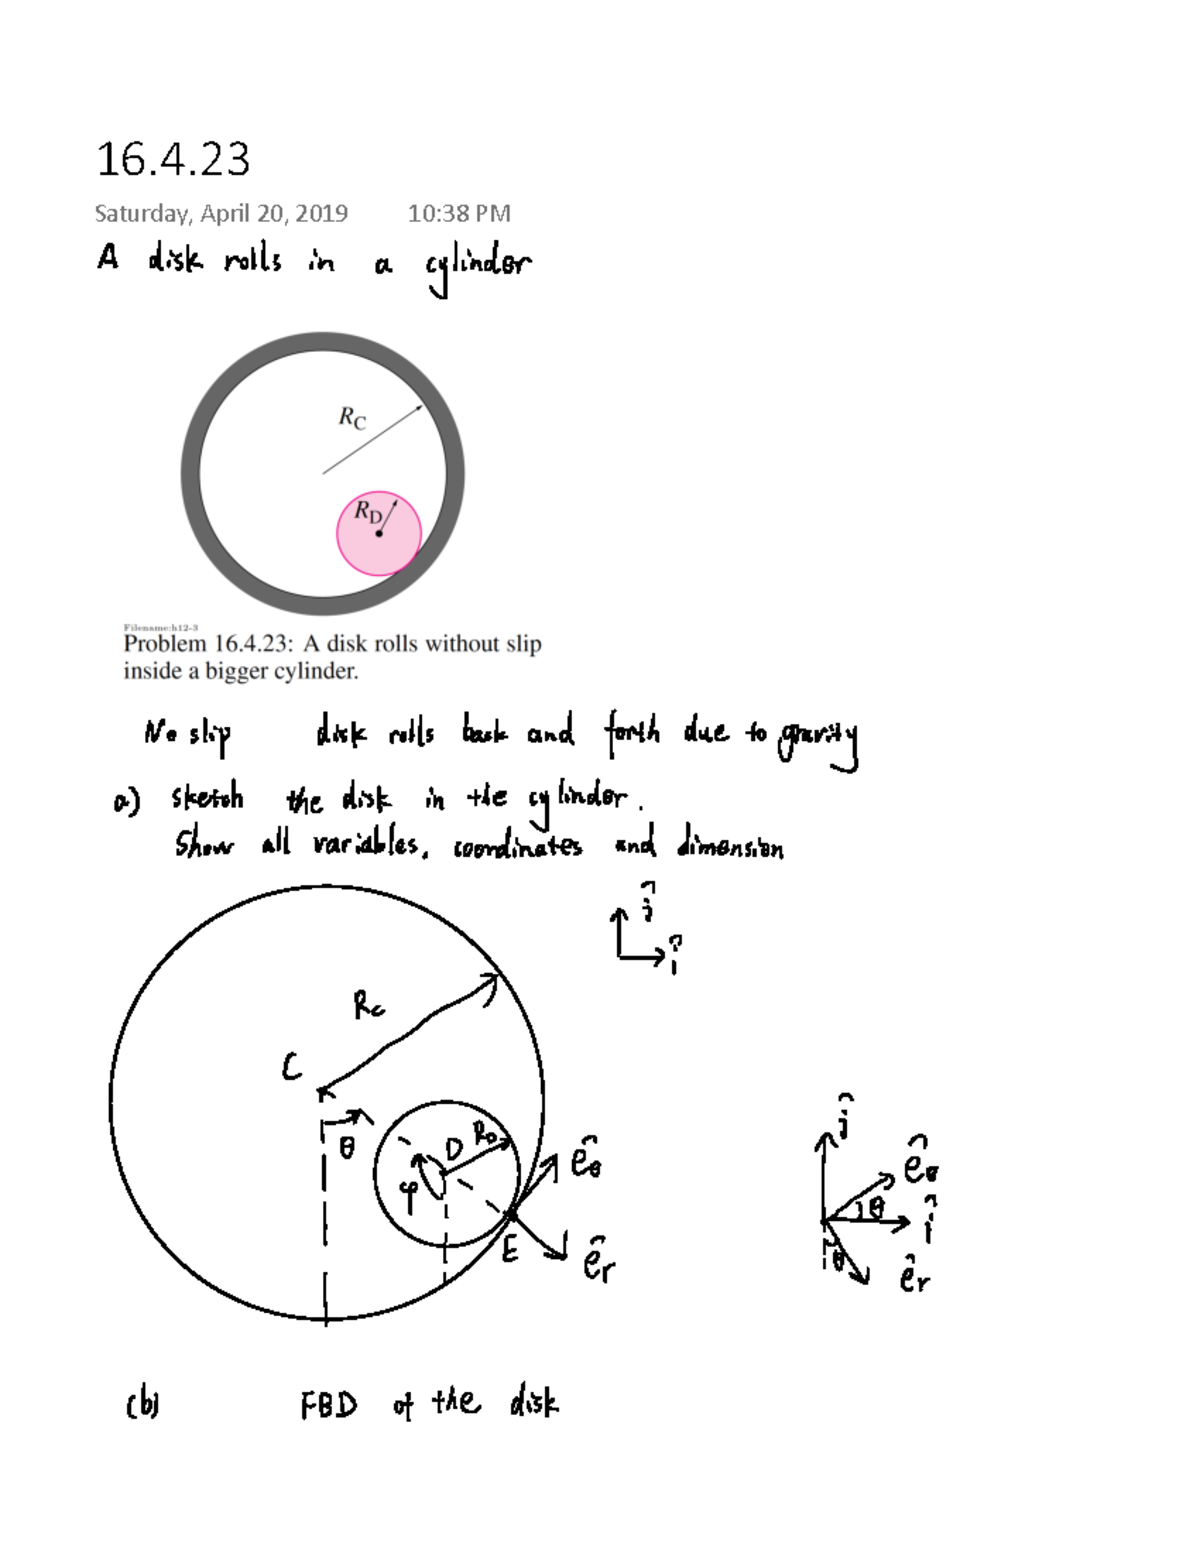 16.4.23
Saturday, April 20, 2019 10:38 PM
A disk rolls in a cylinder
RC
RD
Filename:h12-3
Problem 16.4.23: A disk rolls without slip
inside a bigger cylinder.
No slip disk rolls back and forth due to gravity
a) sketch the disk in the cylinder.
Show all variables, coordinates and dimension
ĵ
î
Rc
C
θ
D
RD
φ
E
êθ
êr
ĵ
êθ
θ
î
θ
êr
(b) FBD of the disk